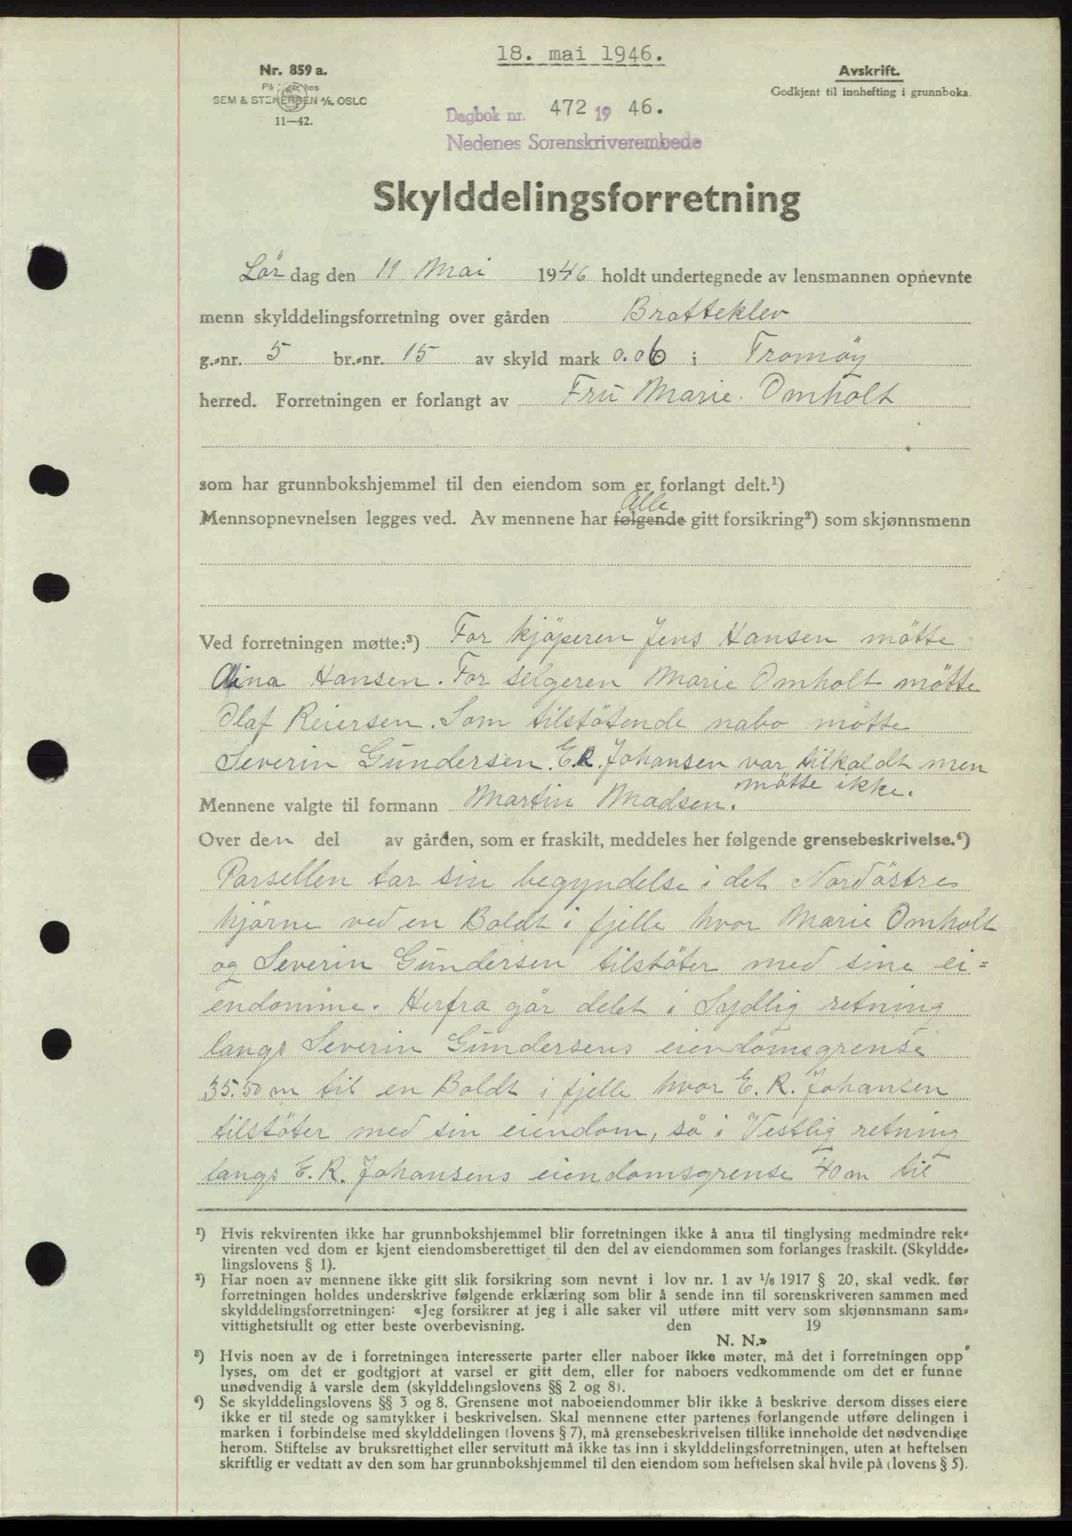 18. mai 1946.
Nr. 859 a.
På
SEM & STENERSEN A/S, OSLO
11—42.
Avskrift.
Godkjent til innhefting i grunnboka.
Dagbok nr. 472 19 46.
Nedenes Sorenskriverembede
Skylddelingsforretning
Lör dag den 11 Mai 1946 holdt undertegnede av lensmannen opnevnte
menn skylddelingsforretning over gården Bratteklev
g.-nr. 5 br.-nr. 15 av skyld mark 0.06 i Tromöy
herred. Forretningen er forlangt av Fru Marie Omholt
som har grunnbokshjemmel til den eiendom som er forlangt delt.¹)
Alle
Mennsopnevnelsen legges ved. Av mennene har følgende gitt forsikring²) som skjønnsmenn
Ved forretningen møtte:³) For kjöperen Jens Hansen mötte
Alina Hansen. For selgeren Marie Omholt mötte
Olaf Reiersen. Som tilstötende nabo mötte
Severin Gundersen. E.R. Johansen var tilkaldt men
mötte ikke.
Mennene valgte til formann Martin Madsen.
Over den del av gården, som er fraskilt, meddeles her følgende grensebeskrivelse.⁴)
Parsellen tar sin begyndelse i det Nordöstre
hjörne ved en Boldt i fjelle hvor Marie Omholt
og Severin Gundersen tilstöter med sine ei=
endomme. Herfra går delet i Sydlig retning
langs Severin Gundersens eiendomsgrense
35.50 m til en Boldt i fjelle hvor E. R. Johansen
tilstöter med sin eiendom, så i Vestlig retning
langs E. R. Johansens eiendomsgrense 40 m til
¹) Hvis rekvirenten ikke har grunnbokshjemmel blir forretningen ikke å anta til tinglysing medmindre rek-
virenten ved dom er kjent eiendomsberettiget til den del av eiendommen som forlanges fraskilt. (Skyldde-
lingslovens § 1).
²) Har noen av mennene ikke gitt slik forsikring som nevnt i lov nr. 1 av 1/6 1917 § 20, skal vedk. før
forretningen holdes underskrive følgende erklæring som blir å sende inn til sorenskriveren sammen med
skylddelingsforretningen: «Jeg forsikrer at jeg i alle saker vil utføre mitt verv som skjønnsmann sam-
vittighetsfullt og etter beste overbevisning. den 19
N. N.»
³) Hvis noen av de i forretningen interesserte parter eller naboer ikke møter, må det i forretningen opp
lyses, om det er godtgjort at varsel er gitt dem, eller for naboers vedkommende om det er funne
unødvendig å varsle dem (skylddelingslovens §§ 2 og 8).
⁴) Se skylddelingslovens §§ 3 og 8. Grensene mot naboeiendommer blir ikke å beskrive dersom disses eiere
ikke er til stede og samtykker i beskrivelsen. Skal mennene etter partenes forlangende utføre delingen i
marken i forbindelse med skylddelingen (lovens § 7), må grensebeskrivelsen tillike inneholde det nødvendige
herom. Stiftelse av bruksrettighet eller servitutt må ikke tas inn i skylddelingsforretningen, uten at heftelsen
skriftlig er vedtatt av den som har grunnbokshjemmel til den eiendom som heftelsen skal hvile på (lovens § 5).